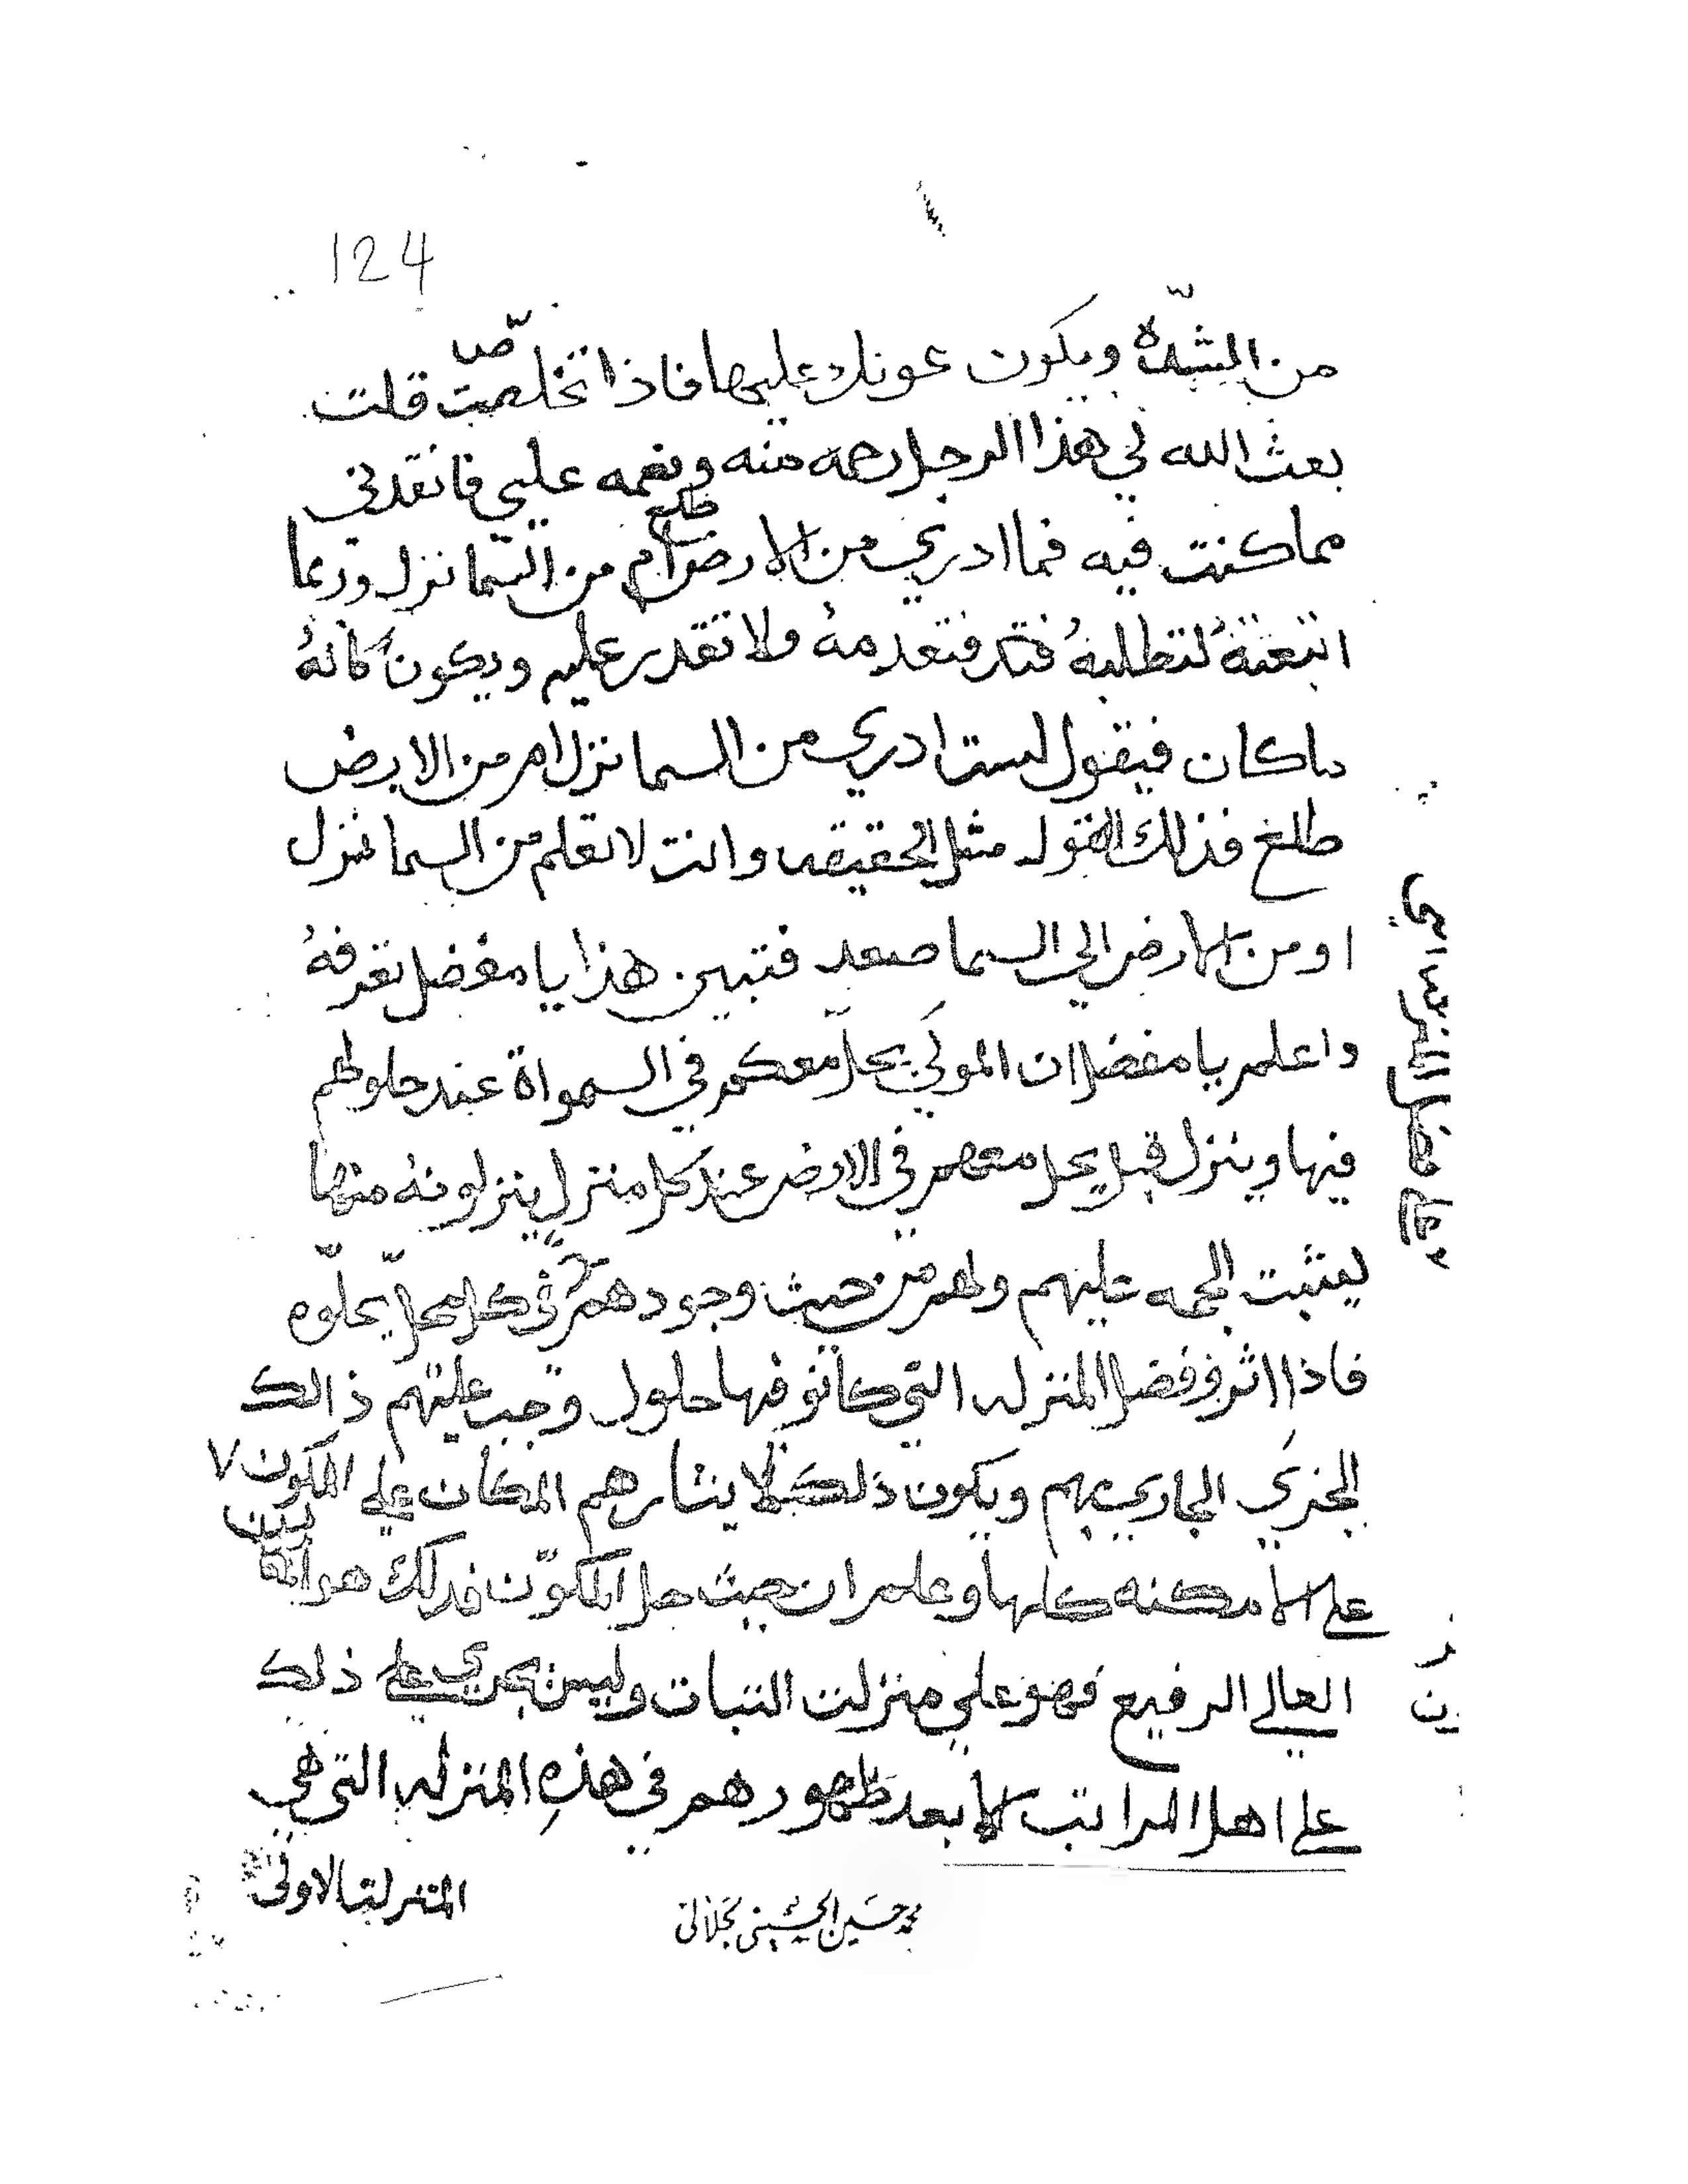 124
من الشدّه ويكون عونك عليها فاذا تخلصت قلت
بعث الله لي هذا الرجل رحمه منه ونعمه علي فانقدني
مما كنت فيه فما ادري من الارض طلع ام من السما نزل وربما
اتبعتهُ لتطلبهُ فتعدمهُ ولا تقدر عليه ويكون كانهُ
ما كان فيقول لست ادري من السما نزل ام من الارض
طلع فذلك القول مثل الحقيقه وانت لا تعلم من السما نزل
او من الارض الي السما صعد فتبين هذا يا مفضل تعرفهُ
واعلم يا مفضل ان المولي يحلّ معكم في السمواة عند حلولهم
فيها وينزل قبل يحل معهم في الارض عند كل منزل ينزلونهُ منها
ليثبت الحجه عليهم ولهم من حيث وجودهم في كل محلّ يحلّوه
فاذا المنزله التي كانو فيها حلول وجب عليهم ذالك
الجاري بهم ويكون ذلك المكان علي المكون
علي الامكنه كلها وعلم ان حيث حل المكوّن فدلك هو
العالي الرفيع فهو علي منزلت التبات وليس يجري علي ذلك
علي اهل المراتب الا بعد ظهورهم في هذهِ المنزله التي هي
المنزلت الاولي
محمد حسين الحسيني الجلالي